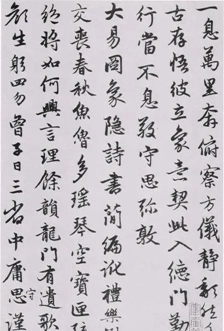 一息萬里奔俯察方儀靜隤然
古存悟彼立象意契此入德門勤
行當不息敬守思彌敦
大易圖象隱詩書簡編訛禮樂矧
交喪春秋魚魯多瑤琴空寶匣
絕將如何興言理餘韻龍門有遺歌
顏生躬四勿曾子日三省中庸思謹
守